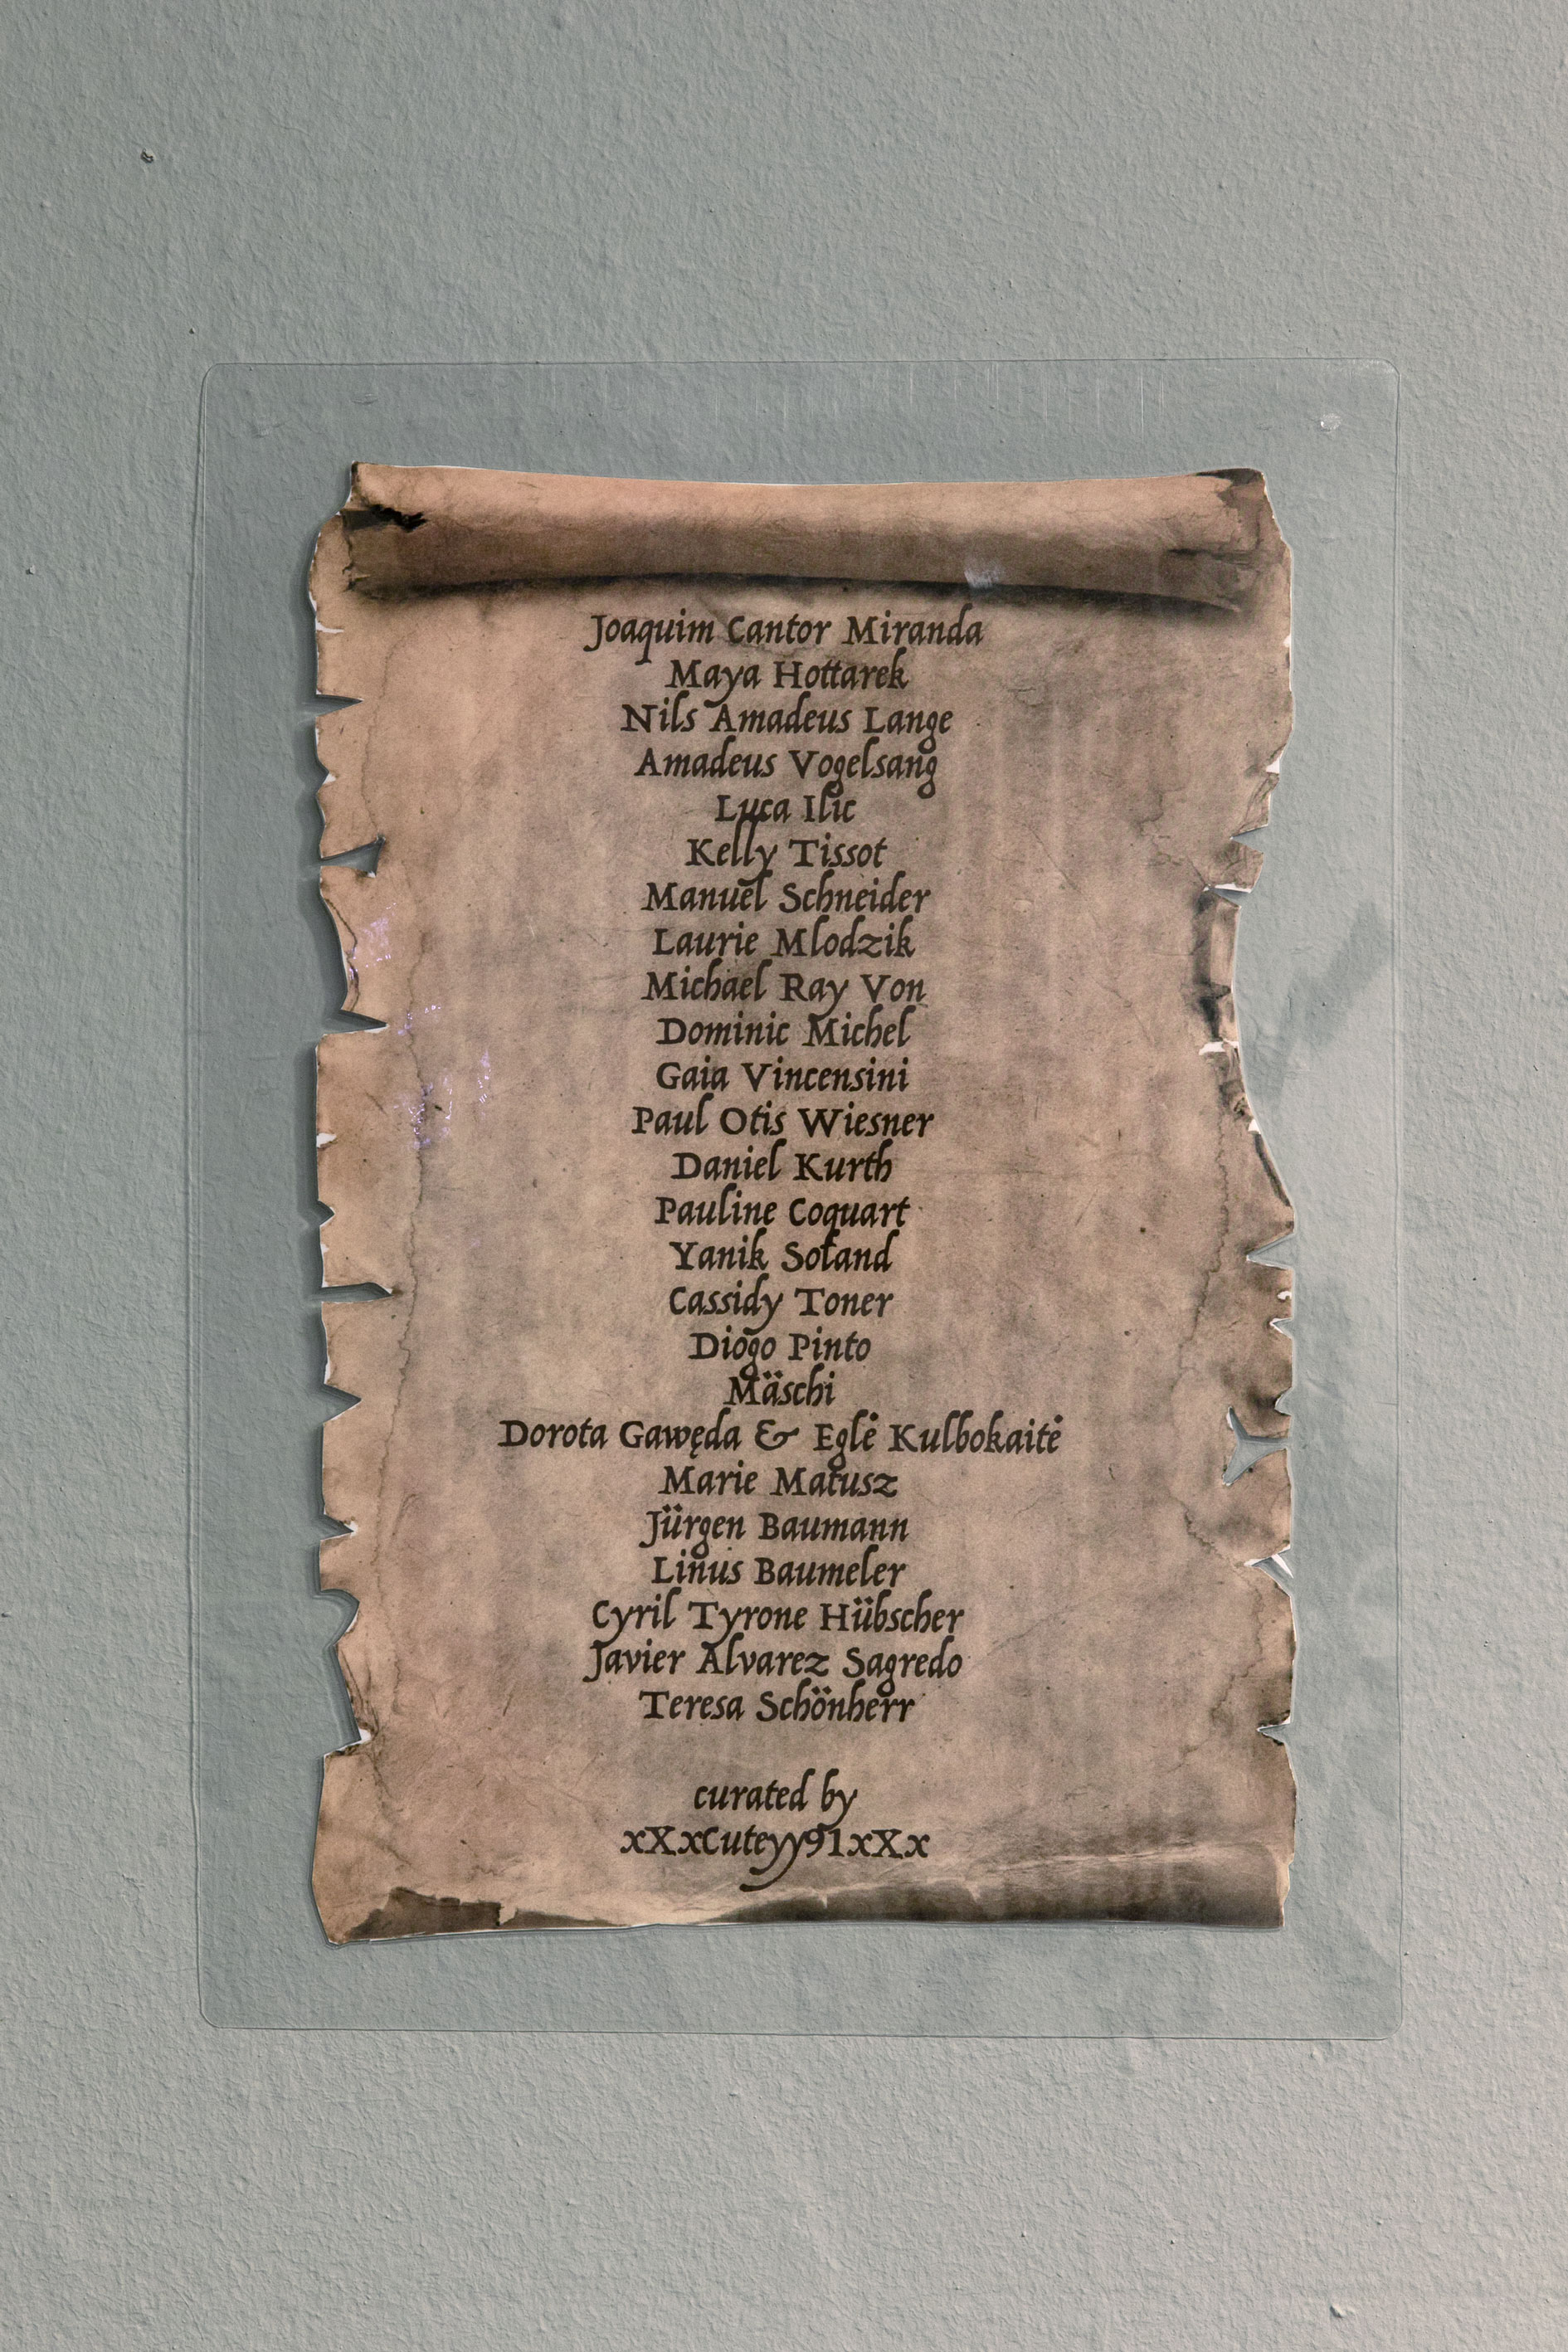 Joaquim Cantor Miranda
Maya Hottarek
Nils Amadeus Lange
Amadeus Vogelsang
Luca Ilic
Kelly Tissot
Manuel Schneider
Laurie Mlodzik
Michael Ray Von
Dominic Michel
Gaia Vincensini
Paul Otis Wiesner
Daniel Kurth
Pauline Coquart
Yanik Soland
Cassidy Toner
Diogo Pinto
Mäschi
Dorota Gawęda & Eglė Kulbokaitė
Marie Matusz
Jürgen Baumann
Linus Baumeler
Cyril Tyrone Hübscher
Javier Alvarez Sagredo
Teresa Schönherr
curated by
xXxCuteyy91xXx